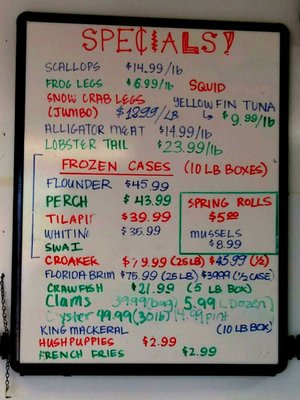 SPECIALS!
SCALLOPS $14.99/lb
FROG LEGS $6.99/lb SQUID
SNOW CRAB LEGS YELLOW FIN TUNA
(JUMBO) $12.99/LB $9.99/lb
ALLIGATOR MEAT $14.99/lb
LOBSTER TAIL $23.99/lb
FROZEN CASES (10 LB BOXES)
FLOUNDER $45.99
PERCH $43.99 SPRING ROLLS
TILAPI $39.99 $5.00
WHITING $35.99 MUSSELS
SWAI $8.99
CROAKER $79.99 (25 LB) $45.99 (½)
FLORIDA BRIM $75.99 (25 LB) $39.99 (½ CASE)
CRAWFISH $21.99 (5 LB BOX)
Clams 39.99 (bag) 5.99 (Dozen)
Oyster 99.99 (30lb) 14.99 pint
KING MACKERAL (10 LB BOX)
HUSHPUPPIES $2.99
FRENCH FRIES $2.99